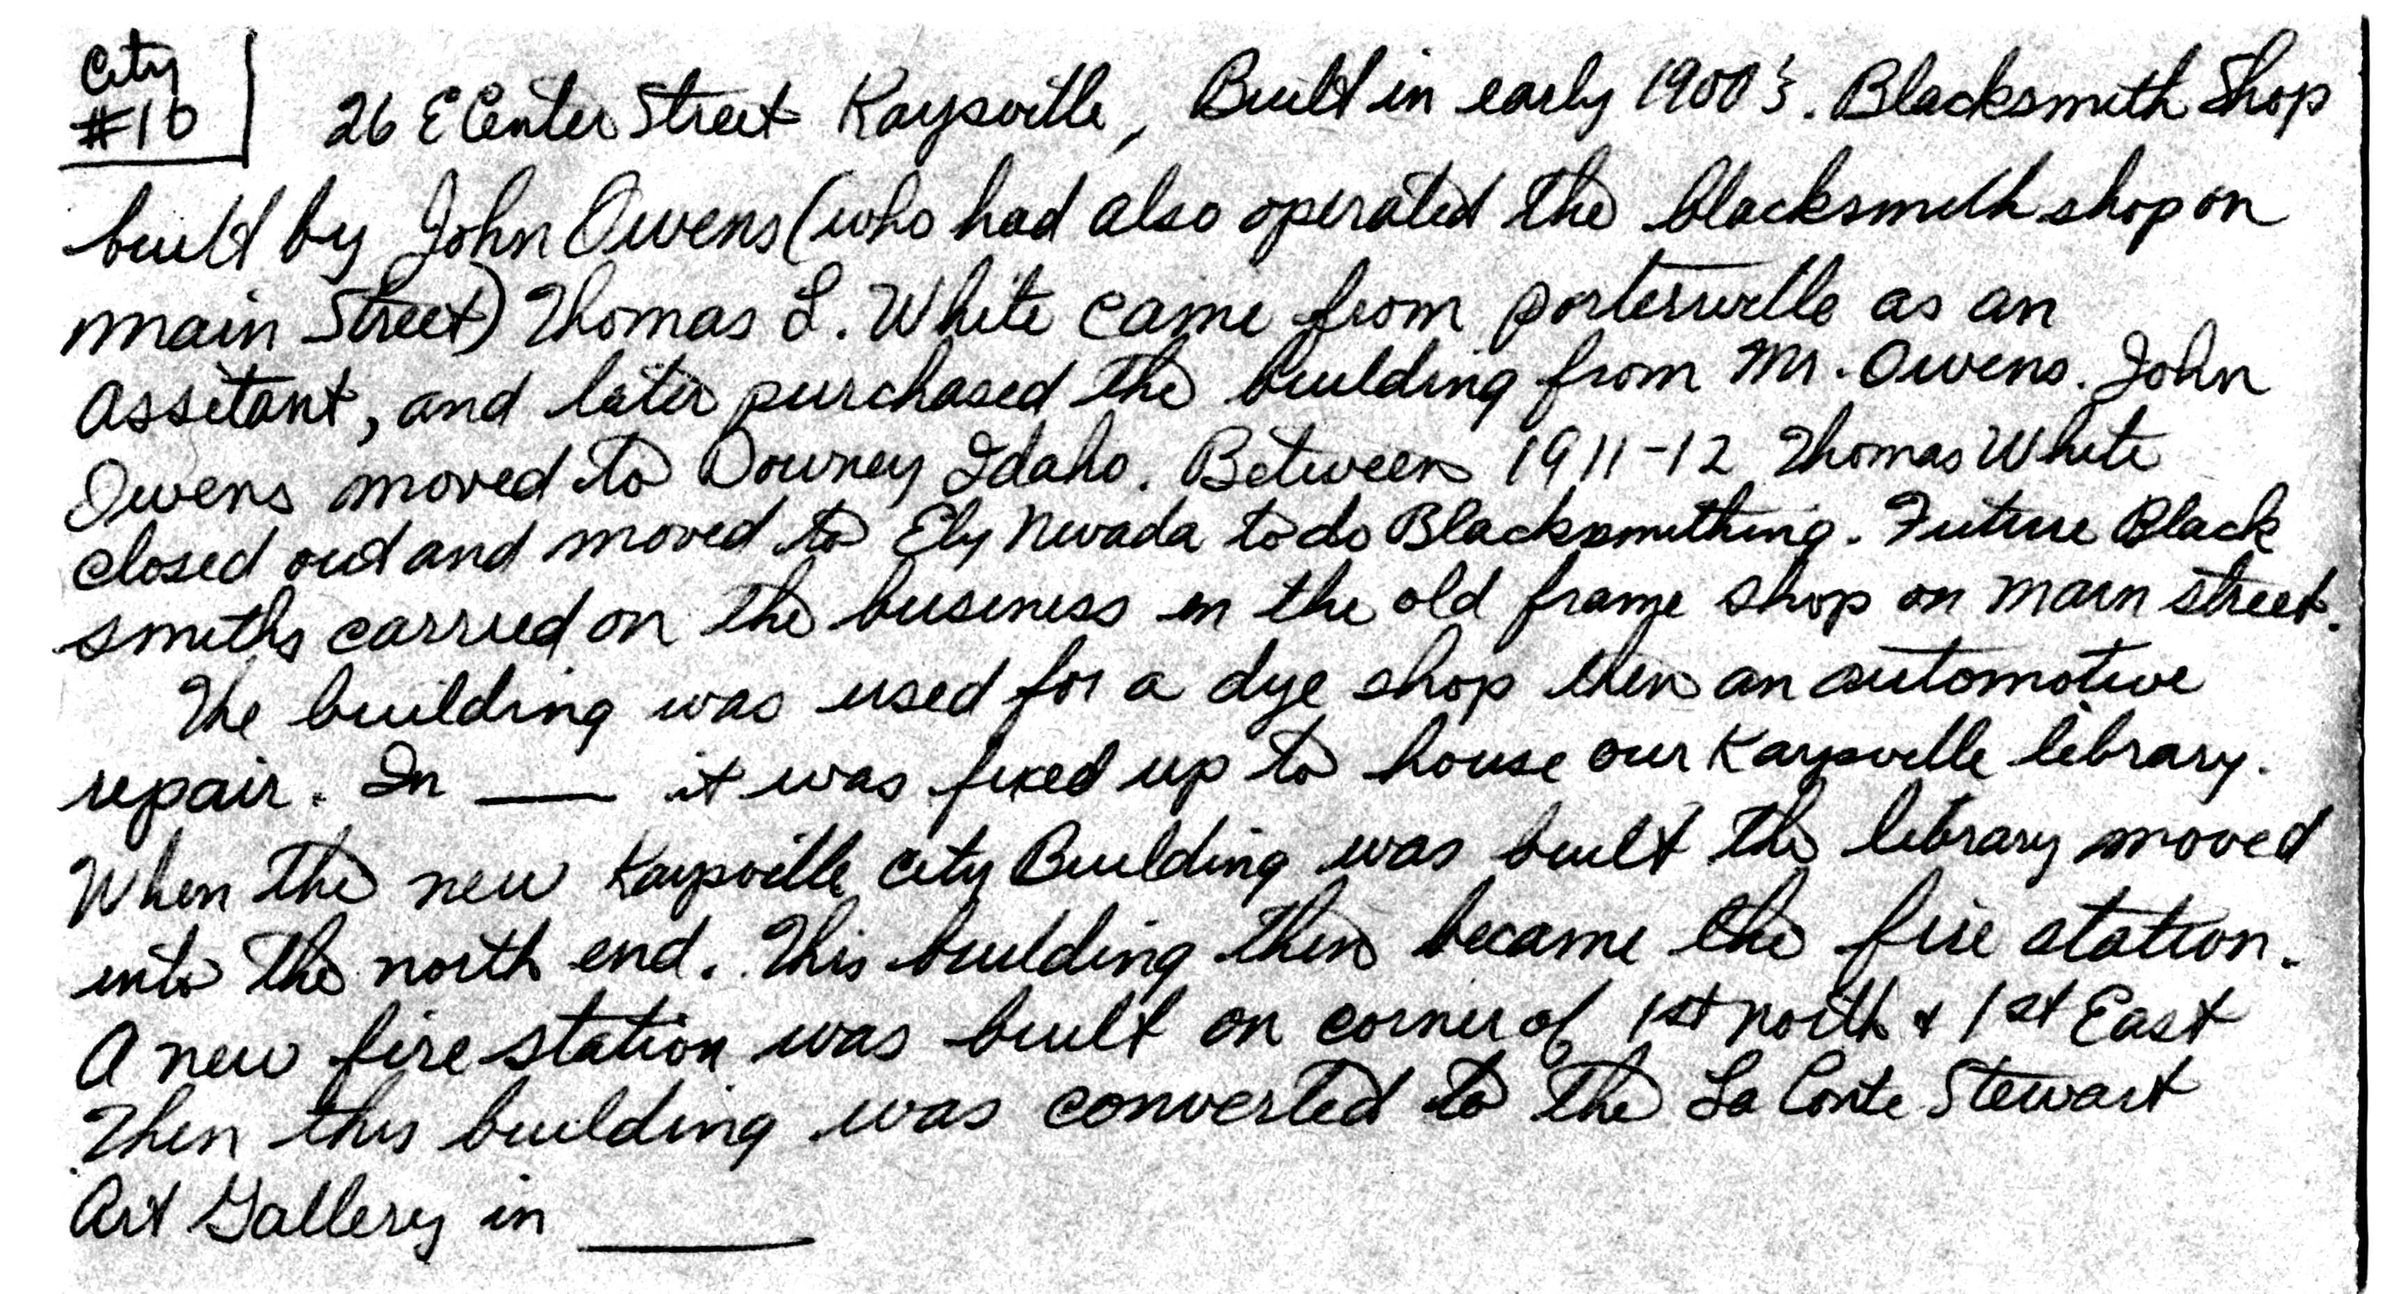 City
#10
26 E Center Street Kaysville, Built in early 1900's. Blacksmith Shop
built by John Owens (who had also operated the blacksmith shop on
main Street) Thomas L. White came from porterville as an
assitant, and later purchased the building from Mr. Owens. John
Owens moved to Downey Idaho. Between 1911-12 Thomas White
closed out and moved to Ely Nevada to do Blacksmithing. Future Black
smiths carried on the business in the old frame shop on main street.
The building was used for a dye shop then an automotive
repair. In ___ it was fixed up to house our Kaysville library.
When the new Kaysville city Building was built the library moved
into the north end. This building then became the fire station.
A new fire station was built on corner of 1st north + 1st East
Then this building was converted to the La Conte Stewart
Art Gallery in ____